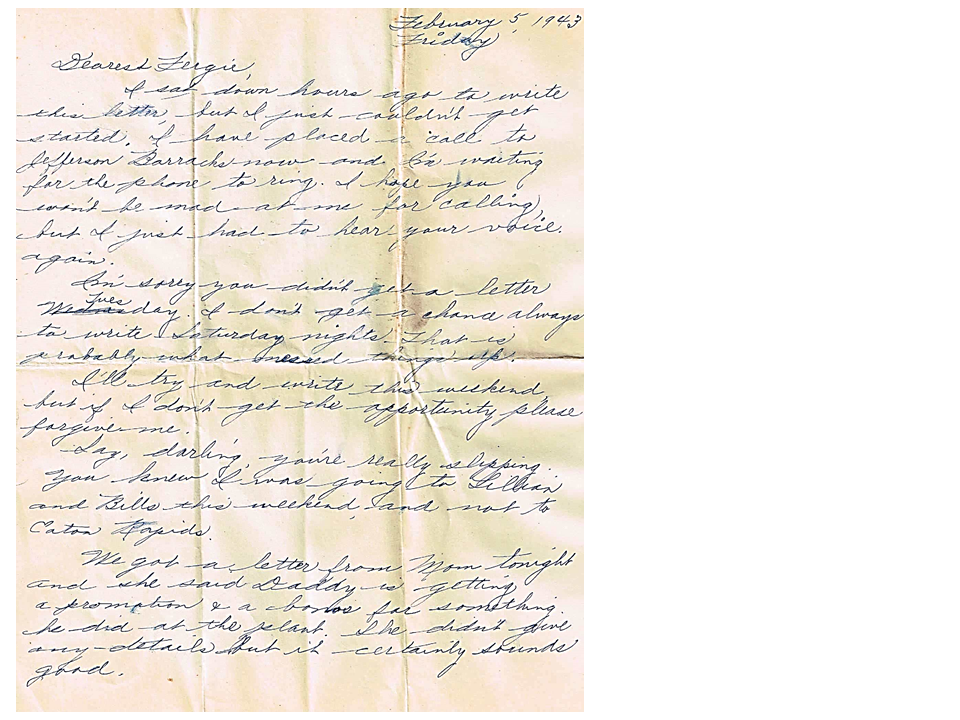 February 5, 1943
Friday
Dearest Fergie,
I sat down hours ago to write
this letter, but I just couldn't get
started. I have placed a call to
Jefferson Barracks now and I'm waiting
for the phone to ring. I hope you
won't be mad at me for calling,
but I just had to hear your voice
again.
I'm sorry you didn't get a letter
Tues
Wednesday. I don't get a chance always
to write Saturday nights. That is
probably what messed things up.
I'll try and write this weekend,
but if I don't get the opportunity please
forgive me.
Say, darling, you're really slipping.
You knew I was going to Lillian
and Bills this weekend, and not to
Eaton Rapids.
We got a letter from Mom tonight
and she said Daddy is getting
a promotion & a bonus for something
he did at the plant. She didn't give
any details but it certainly sounds
good.